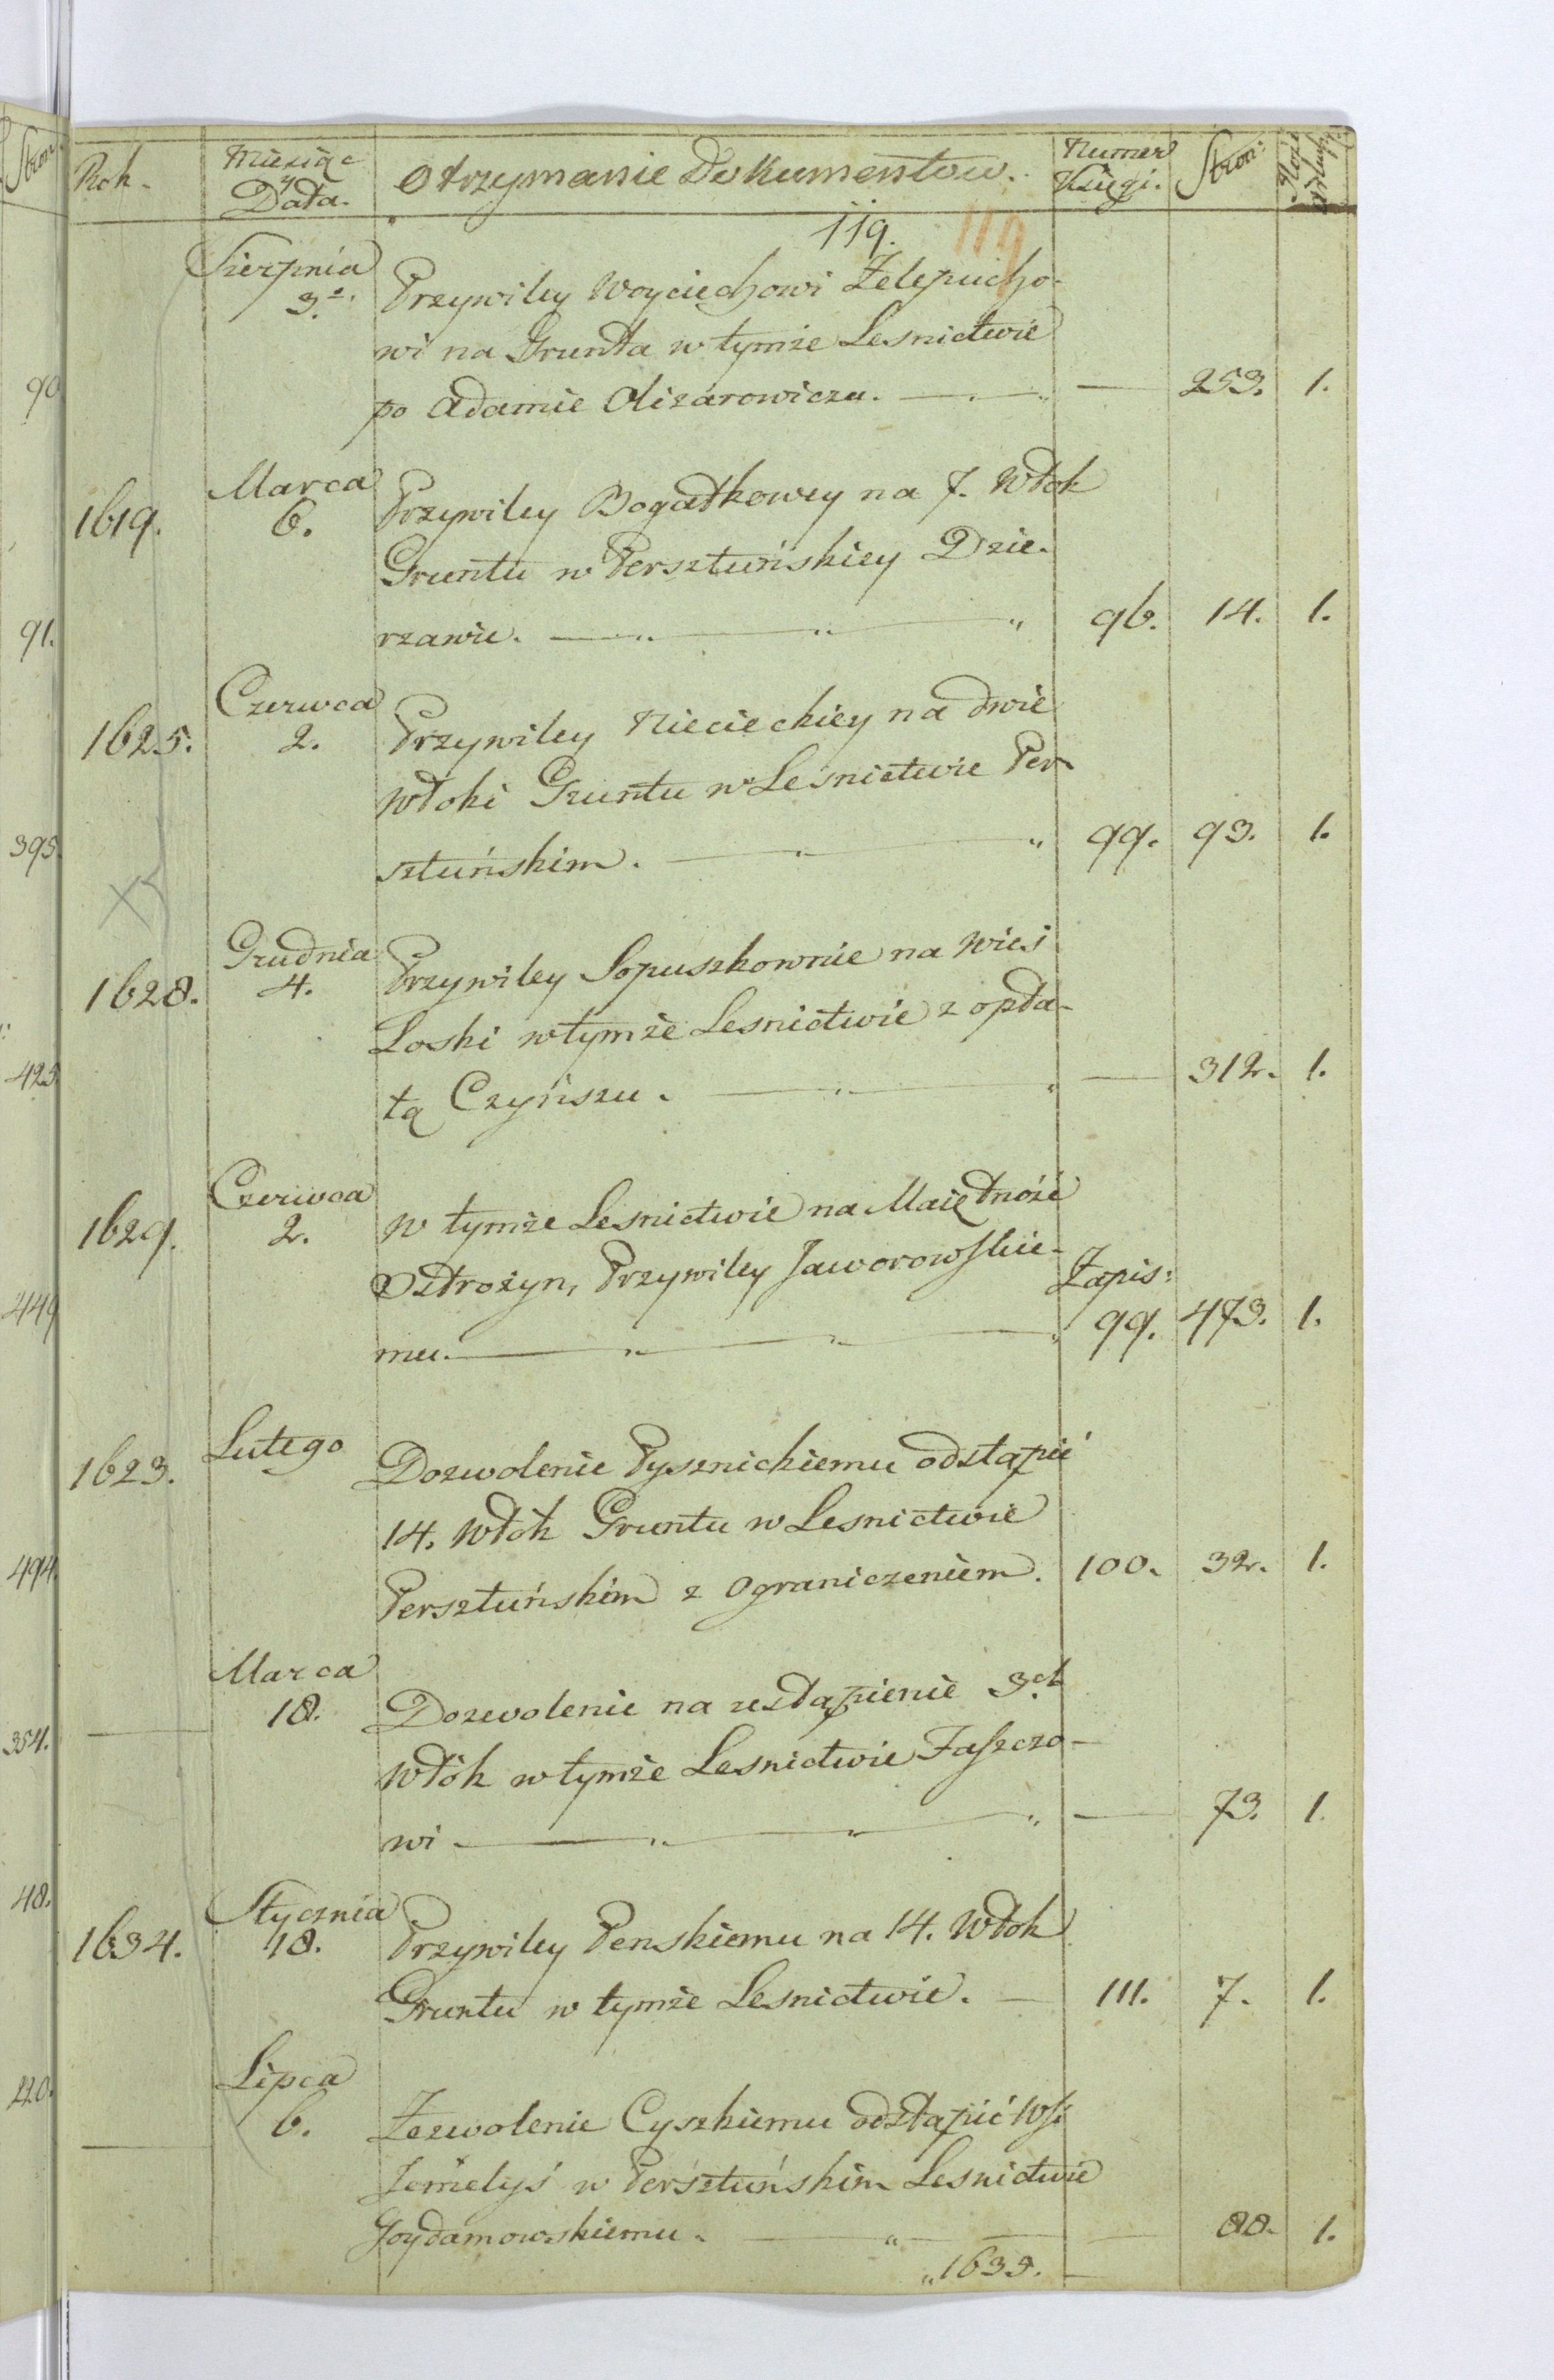 Stron:
Rok.
Miesiąc
y
Data.
Otrzymanie Dokumentow.
Numer
Księgi.
Stron:
119.
119
Sierpnia
3.
Przywiley Woyciechowi Zelepucho-
wi na Grunta w tymże Lesnictwie
po Adamie Olizarowiczu. — 253. 1.
1619.
Marca
6.
Przywiley Bogatkowey na 7. Włok
Gruntu w Persztuńskiey Dzie-
rzawie. — 96. 14. 1.
1625.
Czerwca
2.
Przywiley Niecieckiey na dwie
włoki Gruntu w Leśnictwie Per-
sztuńskim. — 99. 93. 1.
1628.
Grudnia
4.
Przywiley Sopuszkownie na Wieś
Loski w tymże Lesnictwie z opła-
tą Czynszu. — 312. 1.
1629.
Czerwca
2.
w tymże Lesnictwie na Maiętność
Ostrożyn, Przywiley Jaworowskie-
mu. — Zapis:
99. 473. 1.
1623.
Lutego
Dozwolenie Pysznickiemu odstąpić
14. Włók Gruntu w Lesnictwie
Persztuńskim z Ograniczeniem. 100. 32. 1.
Marca
18.
Dozwolenie na ustąpienie 3ch
Włók w tymże Lesnictwie Faszczo-
wi — 73. 1.
1634.
Stycznia
18.
Przywiley Penskiemu na 14. Włok
Gruntu w tymże Lesnictwie. — 111. 7. 1.
Lipca
6.
Zezwolenie Cyszkiemu odstąpić Wsi
Jemielyś w Persztuńskim Lesnictwie
Goydamowskiemu. — 88. 1.
1633.
90
91.
395.
425
449
494.
354.
48.